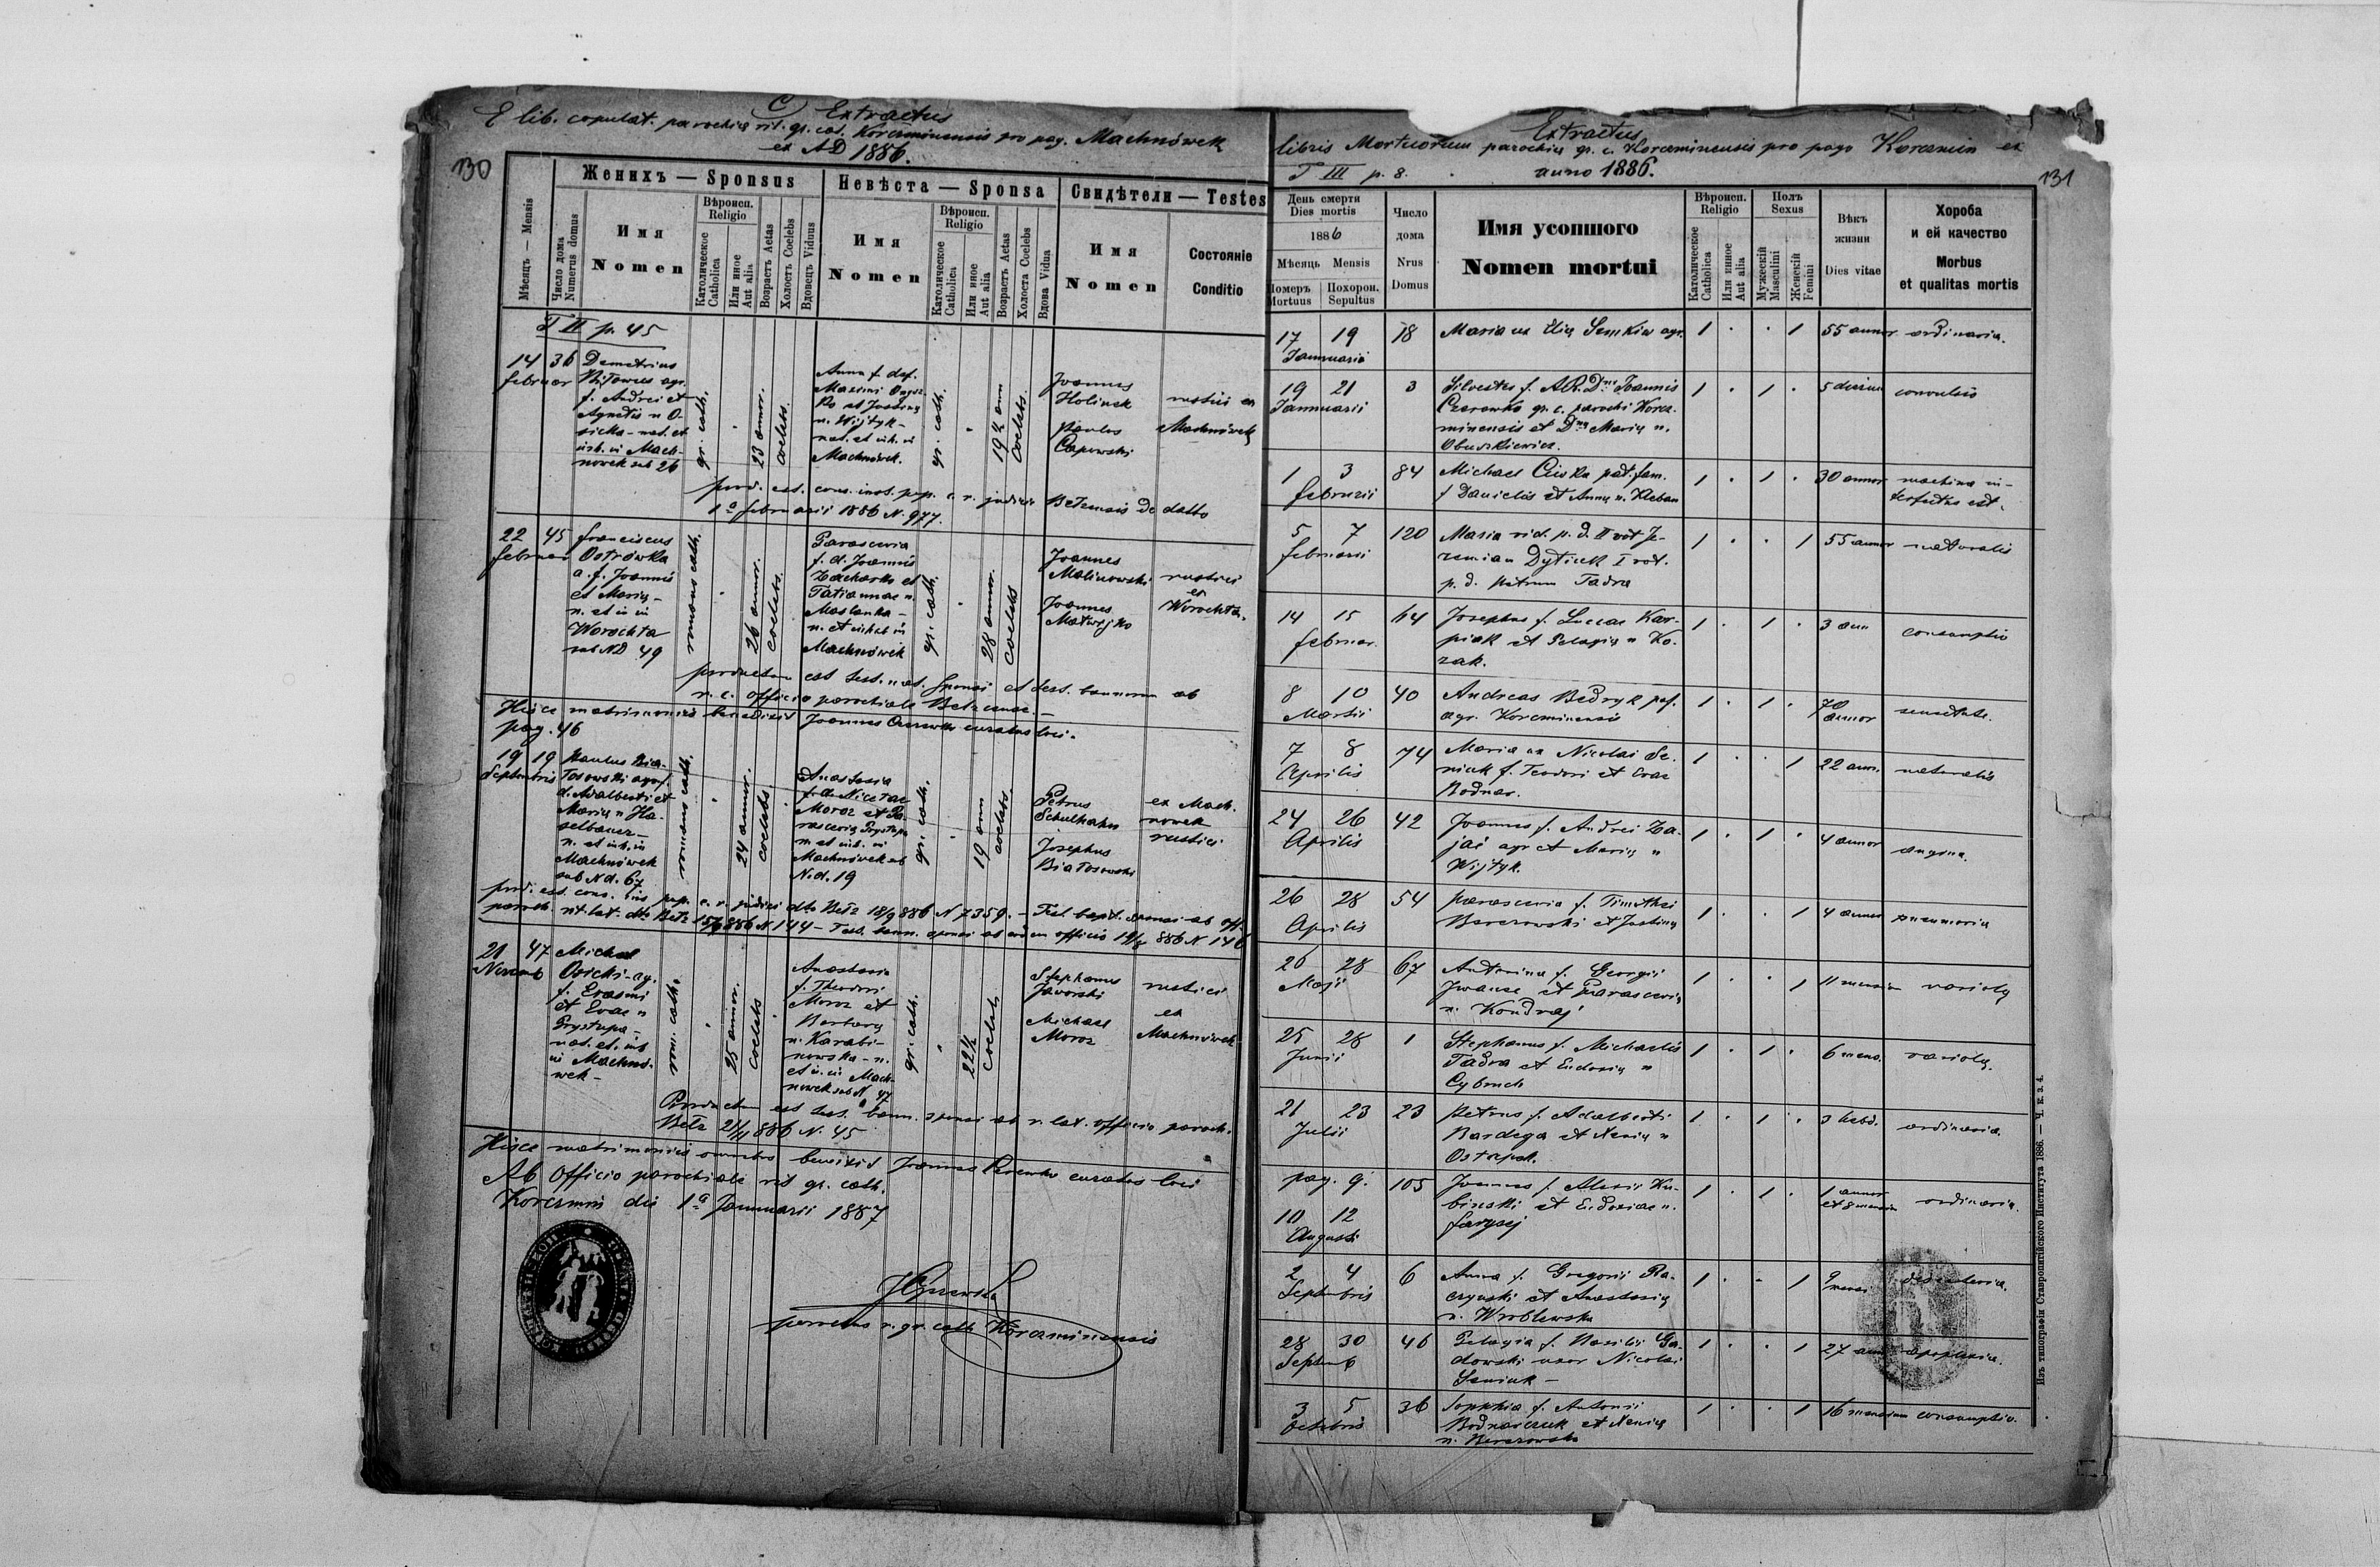 130
C) Extractus
E lib. copulat. parochiæ rit. gr. cat. Korczminensis pro pag. Machnówek
ex AD 1886.
Женихъ — Sponsus
Невѣста — Sponsa
Свидѣтели — Testes
Мѣсяцъ — Mensis
Число дома
Numerus domus
Имя
Nomen
Вѣроисп.
Religio
Католическое
Catholica
Или иное
Aut alia
Возрастъ Aetas
Холостъ Coelebs
Вдовецъ Viduus
Имя
Nomen
Вѣроисп.
Religio
Католическое
Catholica
Или иное
Aut alia
Возрастъ Aetas
Холоста Coelebs
Вдова Vidua
Имя
Nomen
Состояніе
Conditio
T II p. 45
14 36 Demetrius
februar
agr.
f. Andrei et
Agnetis n O-
sicka - nat. et
inh. in Mach-
nowek sub 26
gr. cath.
23 annor.
coelebs.
Anna f. def.
Maximi
n. Wijtyk -
nat. et inh. in
Machnówek.
gr. cath.
19 ½ ann
coelebs.
Joannes
Holinek
Paulus
rustici ex
Machnówek
prod. est. cons. inst. pup. c. r. judicii Belzensis de datto
1ª februarii 1886 N. 977.
22 45 Franciscus
februar Ostrówka
a. f. Joannis
et Mariæ -
n. et in in
Worochta
sub ND 49
romano cath.
26 annor.
coelebs.
Parascevia
f. d. Joannis
Zacharko et
Tatiannae n.
Maslanka -
n. et inhab in
Machnówek
gr. cath.
28 annor.
coelebs
Joannes
Malinowski
Joannes
Matwejko
rustici
ex
Worochta.
productum est test. nat. sponsi et test. bannorum ab
r. l. officio parochiale Belzense. -
Hisce matrimoniis benedixit Joannes Czerewko curatus loci.
pag. 46
19 19 Paulus Bia-
Septembris łosowski agr. f.
d. Adalberti et
Mariæ n Ha-
selbauer -
n. et inh. in
Machnówek
sub Nd. 67
romano cath.
24 annor.
coelebs
Anastasia
f. d. Nicetae
Moroz et Pa-
rascevia Prystupa
n. et inh. in
Machnówek sub
N. d. 19
gr. cath.
19 ann
coelebs
Petrus
Schulhahn
Josephus
Białosowski
ex Mach-
nowek
rustici
prod. est. cons. ins pup. c. r. judicii dto Bełz 18/9 886 N 7359. - Test bapt. sponsi ab off.
paroch. rit. lat. dto Bełz 886 N. 144 - Test. bann. sponsi ab eodem officio 886 N 146
21 47 Michael
Novemb Osicki - ag.
f. Erasmi
et Evae n
Prystupa -
nat. et. inh
in Machnó-
wek -
rom. cath.
25 annor.
coelebs
Anastasia
f. Theodori
Moroz et
Barbaræ
n. Karabi-
nowska - n.
et in. in Mach-
nowek sub N 47
gr. cath.
22 ½
coelebs
Stephanus
Jaworski
Michael
Moroz
rustici
ex
Machnówek
Productum est test. bann. sponsi ab r. lat. officio paroch.
Bełz 21/11 886 N. 45
Hisce matrimoniis omnibus benedixit Joannes Czerewko curatus loci
Ab Officio parochiale rit gr. cath.
Korczmin die 1ª Januarii 1887
parochus r. gr. cath Korczminensis
131
Extractus
libris Mortuorum parochiæ gr. c. Korczminensis pro pago Korczmin ex
T III p. 8. anno 1886.
День смерти
Dies mortis
1886
Мѣсяць Mensis
Номеръ
Mortuus
Похорон.
Sepultus
Число
дома
Nrus
Domus
Имя усопшого
Nomen mortui
Вѣроисп.
Religio
Католическое
Catholica
Или инное
Aut alia
Полъ
Sexus
Мужескій
Masculini
Женскій
Femini
Вѣкъ
жизни
Dies vitae
Хороба
и ей качество
Morbus
et qualitas mortis
17 19 18 Maria ux Eliæ Semkiw agr. 1 . . 1 55 annor ordinaria.
Januarii
19 21 3 Silvester f. A.R.Dni Joannis 1 . 1 . 5 dierum convulsio
Januarii Czerewko gr. c. parochi Korcz-
minensis et Dnæ Mariæ n.
Obuszkiewicz.
1 3 84 Michael Ciska pat. fam. 1 . 1 . 30 annor machina in-
februarii f Danielis et Annæ n. Kleban terfectus est.
5 7 120 Maria vid. p. d. II vot Je- 1 . . 1 55 annor naturalis
februarii remian Dytiuk I vot.
p. d. Petrum Tadra
14 15 64 Josephus f. Lucae Kar- 1 . 1 . 3 ann consumptio
februar. piak et Pelagiæ n Ko-
zak.
8 10 40 Andreas Bedryk 1 . 1 . 70
Martii agr. Korczminensis annor
7 8 74 Maria ux Nicolai Se- 1 . . 1 22 ann. naturalis
Aprilis niuk f. Teodori et Evae
Bodnar.
24 26 42 Joannes f. Andrei Za- 1 . 1 . 4 annor angina.
Aprilis jać agr et Mariæ n
Wijtyk.
26 28 54 Parascevia f. Timothei 1 . . 1 4 annor pneumonia
Aprilis Berezowski et Justinæ
26 28 67 Antonina f. Georgii 1 . . 1 11 mensium variolæ
Maji Iwaniec et Parasceviæ
n. Kondraj
25 28 1 Stephanus f. Michaelis 1 . 1 . 6 mens. variolæ.
Junii Tadra et Eudoxiæ n
Cybruch
21 23 23 Petrus f. Adalberti 1 . 1 . 3 hebd. ordinaria.
Julii Bardega et Xeniæ n
Ostapiuk.
pag. 9. 105 Joannes f. Alexii Ku- 1 . 1 . 1 annor ordinaria.
binski et Eudoxiae n. et 8 mensium
10 12
Augusti
2 4 6 Anna f. Gregorii Ra- 1 . - 1 9
Septembris czynski et Anastasiæ mensi
n. Wroblewska
28 30 46 Pelagia f. Basilii Ga- 1 . . 1 27 ann apoplexia.
Septemb dowski uxor Nicolai
Seniuk -
3 5 36 Sophia f. Antonii 1 . . 1 16 mensium consumptio.
Octobris Bodnarczuk et Xeniæ
n. Berezowska
Изъ типографіи Ставропигійского Института 1886. — Ч. к. з. 4.